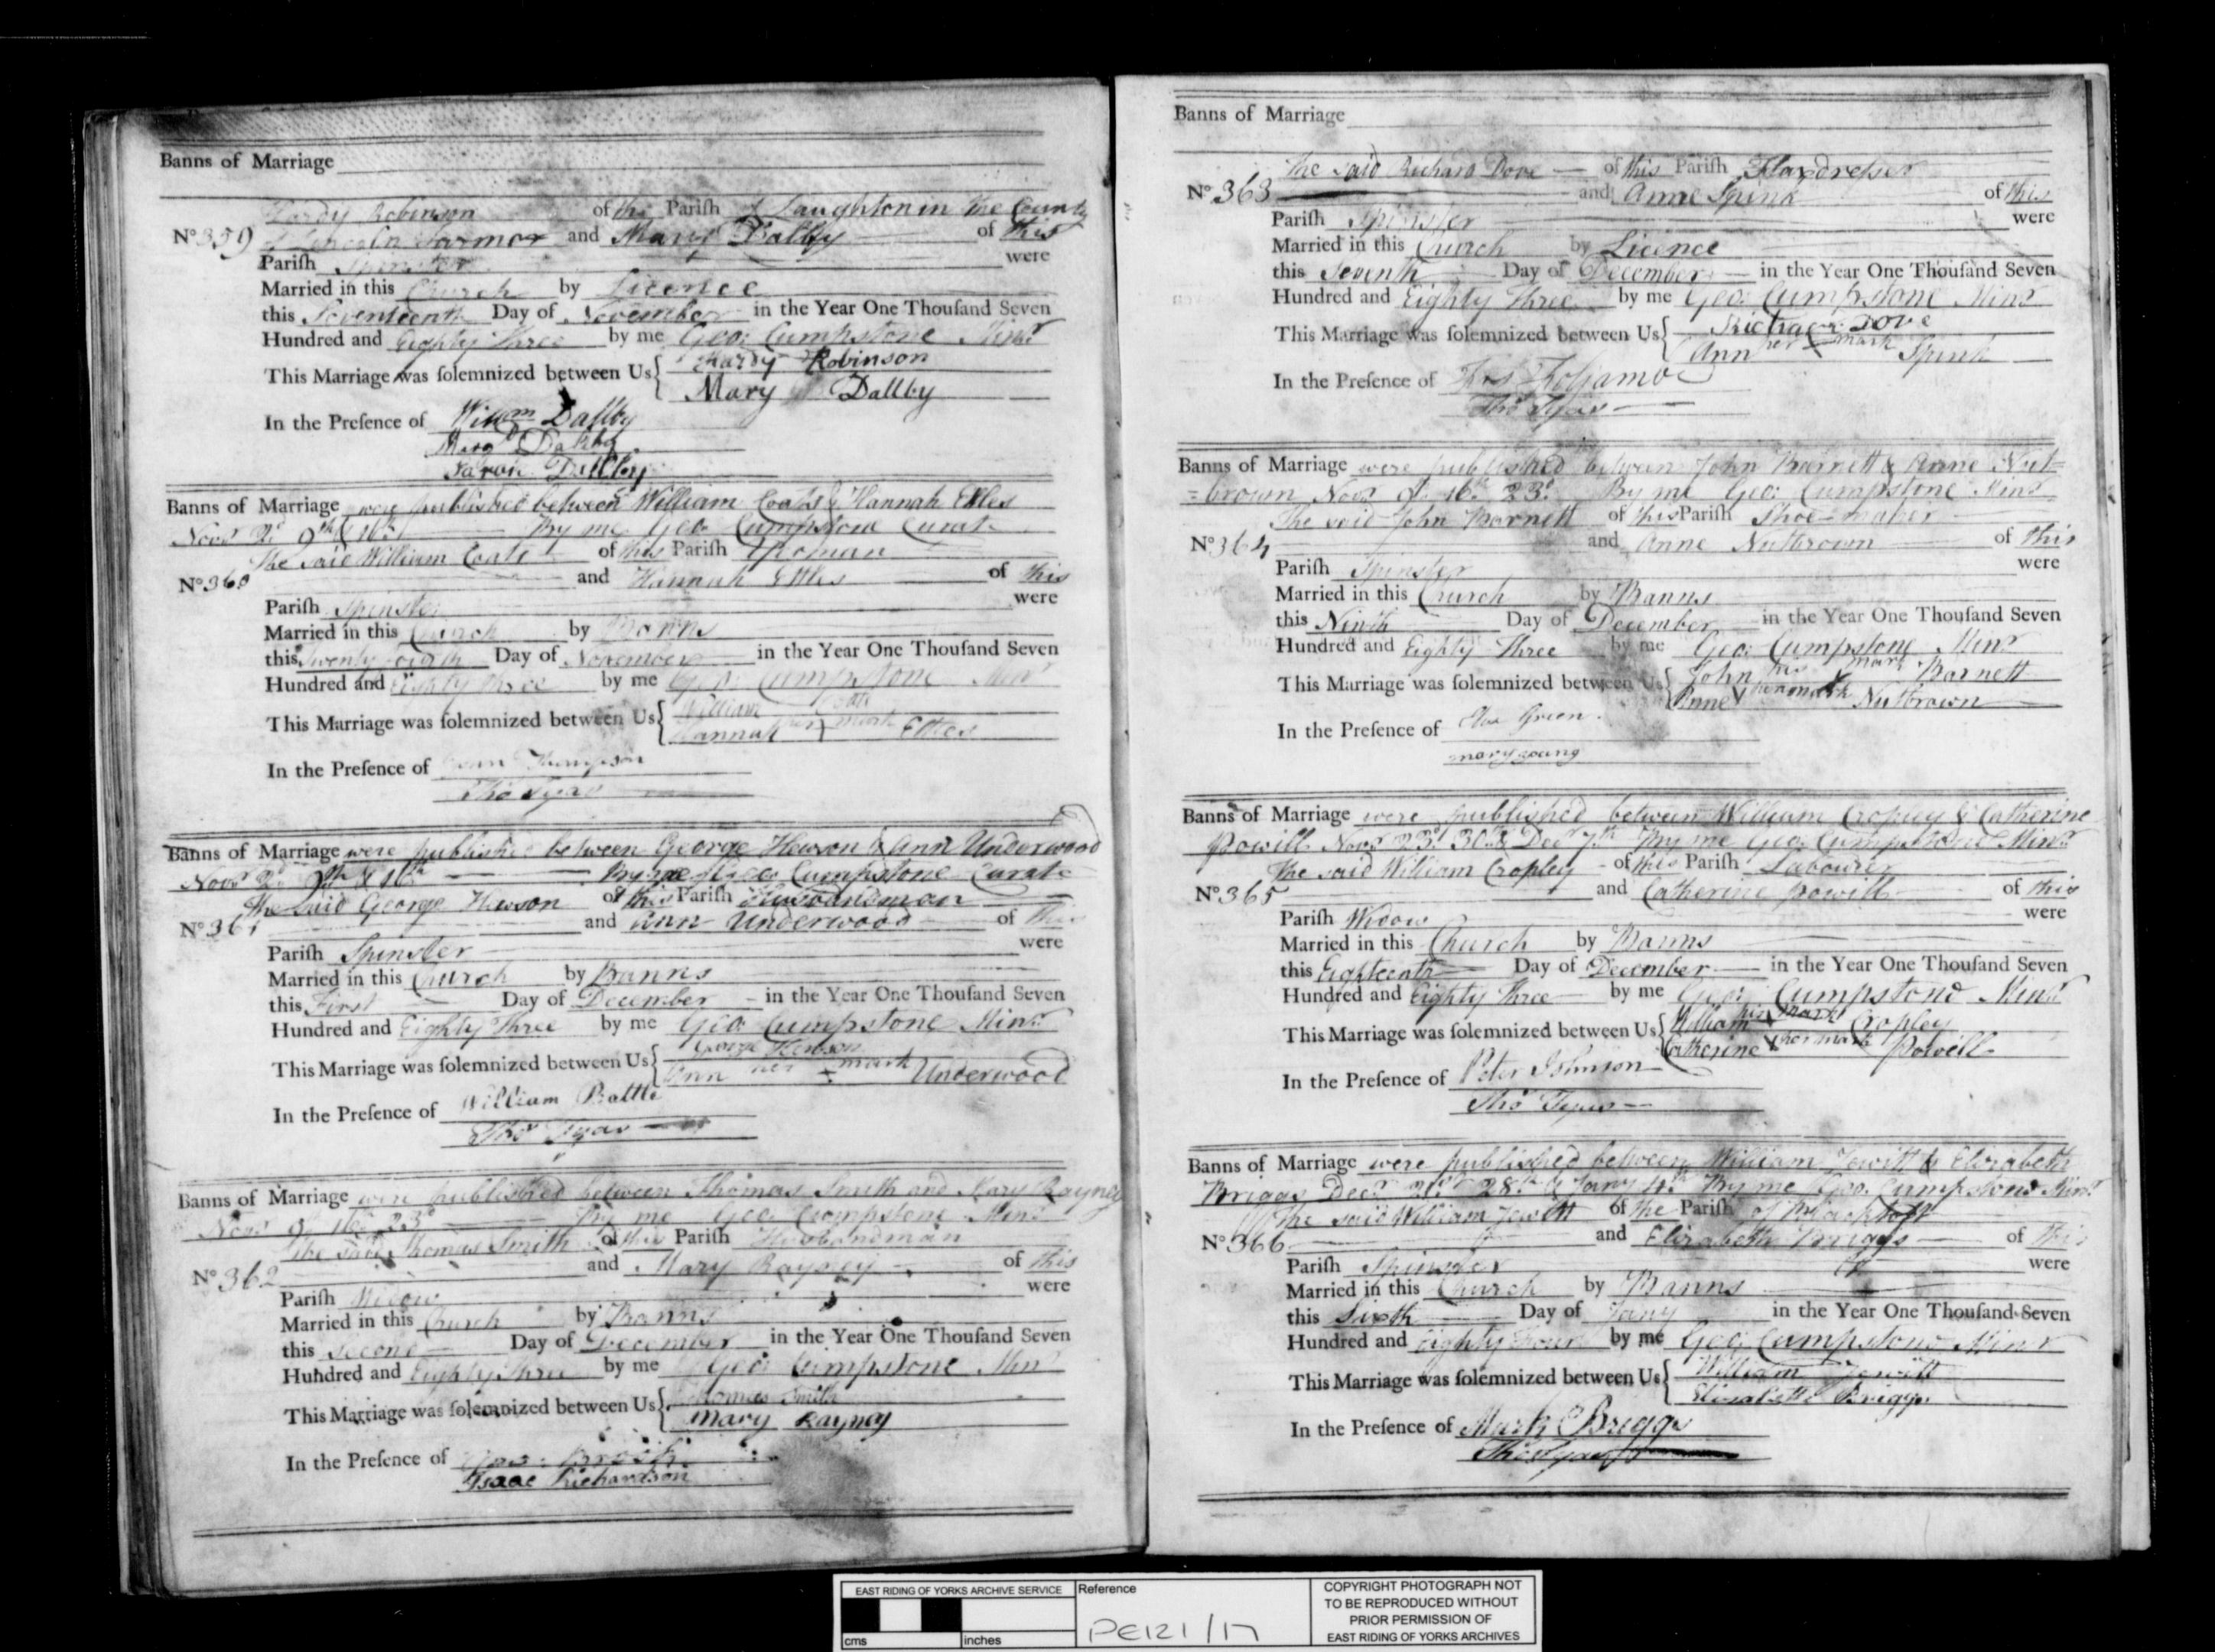 Banns of Marriage
Hardy Robinson of the Parish of Laughton in the County
No 359 of Lincoln Farmer and Mary Dalby of this
Parish Spinster were
Married in this Church by Licence
this Seventeenth Day of November in the Year One Thousand Seven
Hundred and Eighty Three by me Geo: Cumpstone Minr
This Marriage was solemnized between Us Hardy Robinson
Mary Dallby
In the Presence of Willm Dallby
Dallby
Banns of Marriage were published between William Coats & Hannah Ettles
Novr 2d 9th & 16th By me Geo. Cumpstone Curate
The said William Coats of this Parish Yeoman
No 360 and Hannah Ettles of this
Parish Spinster were
Married in this Church by Banns
this Twenty fourth Day of November in the Year One Thousand Seven
Hundred and Eighty three by me Geo: Cumpstone Minr
This Marriage was solemnized between Us William Coats
Hannah her mark Ettles
In the Presence of Thompson
Tho Tyas
Banns of Marriage were published between George Hewson & Ann Underwood
Novr 2d 9th & 16th By me Geo: Cumpstone Curate
The said George Hewson of this Parish Husbandman
No 361 and Ann Underwood of this
Parish Spinster were
Married in this Church by Banns
this First Day of December in the Year One Thousand Seven
Hundred and Eighty Three by me Geo: Cumpstone Minr
This Marriage was solemnized between Us George Hewson
Ann her mark Underwood
In the Presence of William Battle
Tho Tyas
Banns of Marriage were published between Thomas Smith and Mary Rayney
Novr 9th 16th 23d By me Geo: Cumpstone Minr
The said Thomas Smith of this Parish Husbandman
No 362 and Mary Rayney of this
Parish Widow were
Married in this Church by Banns
this Second Day of December in the Year One Thousand Seven
Hundred and Eighty three by me Geo: Cumpstone Minr
This Marriage was solemnized between Us Thomas Smith
Mary Rayney
In the Presence of
Isaac Richardson
Banns of Marriage
The said Richard Dove of this Parish Flaxdresser
No 363 and Anne Spink of this
Parish Spinster were
Married in this Church by Licence
this Seventh Day of December in the Year One Thousand Seven
Hundred and Eighty Three by me Geo: Cumpstone Minr
This Marriage was solemnized between Us Richard Dove
Ann her mark Spink
In the Presence of
Tho Tyas
Banns of Marriage were published between John Barnett & Anne Nut=
=brown Novr 9th 16th 23d By me Geo: Cumpstone Minr
The said John Barnett of this Parish Shoe-maker
No 364 and Anne Nutbrown of this
Parish Spinster were
Married in this Church by Banns
this Ninth Day of December in the Year One Thousand Seven
Hundred and Eighty Three by me Geo: Cumpstone Minr
This Marriage was solemnized between Us John his mark Barnett
Anne her mark Nutbrown
In the Presence of Green
mary young
Banns of Marriage were published between William Cropley & Catherine
Powill Novr 23d 30th & Decr 7th By me Geo: Cumpstone Minr
The said William Cropley of this Parish Labourer
No 365 and Catherine Powill of this
Parish Widow were
Married in this Church by Banns
this Eighteenth Day of December in the Year One Thousand Seven
Hundred and Eighty Three by me Geo: Cumpstone Minr
This Marriage was solemnized between Us William his mark Cropley
Catherine her mark Powill
In the Presence of Peter Johnson
Tho Tyas
Banns of Marriage were published between William Jewitt & Elizabeth
Briggs Decr 21st 28th & Jany 4th By me Geo. Cumpstone Minr
The said William Jewitt of the Parish of
No 366 and Elizabeth Briggs of this
Parish Spinster were
Married in this Church by Banns
this Sixth Day of Jany in the Year One Thousand Seven
Hundred and Eighty Four by me Geo: Cumpstone Minr
This Marriage was solemnized between Us William Jewitt
Elizabeth Briggs
In the Presence of Mark Briggs
Tho Tyas
EAST RIDING OF YORKS ARCHIVE SERVICE
cms inches
Reference
PE121/17
COPYRIGHT PHOTOGRAPH NOT
TO BE REPRODUCED WITHOUT
PRIOR PERMISSION OF
EAST RIDING OF YORKS ARCHIVES